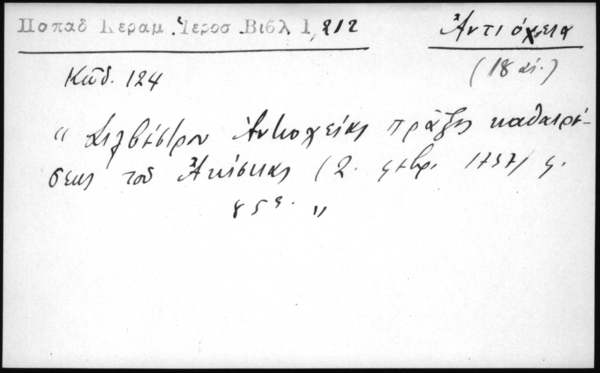 Ποπαδ Κεραμ Ἱεροσ Βιβλ 1, 212
Ἀντιόχεια
(18 αἰ.)
Κῶδ. 124
“ Σιλβέστρου Ἀντιοχείας πρᾶξις καθαιρέ-
σεως τοῦ Ἀκίσκας (2. φεβρ. 1757) φ.
85α. „